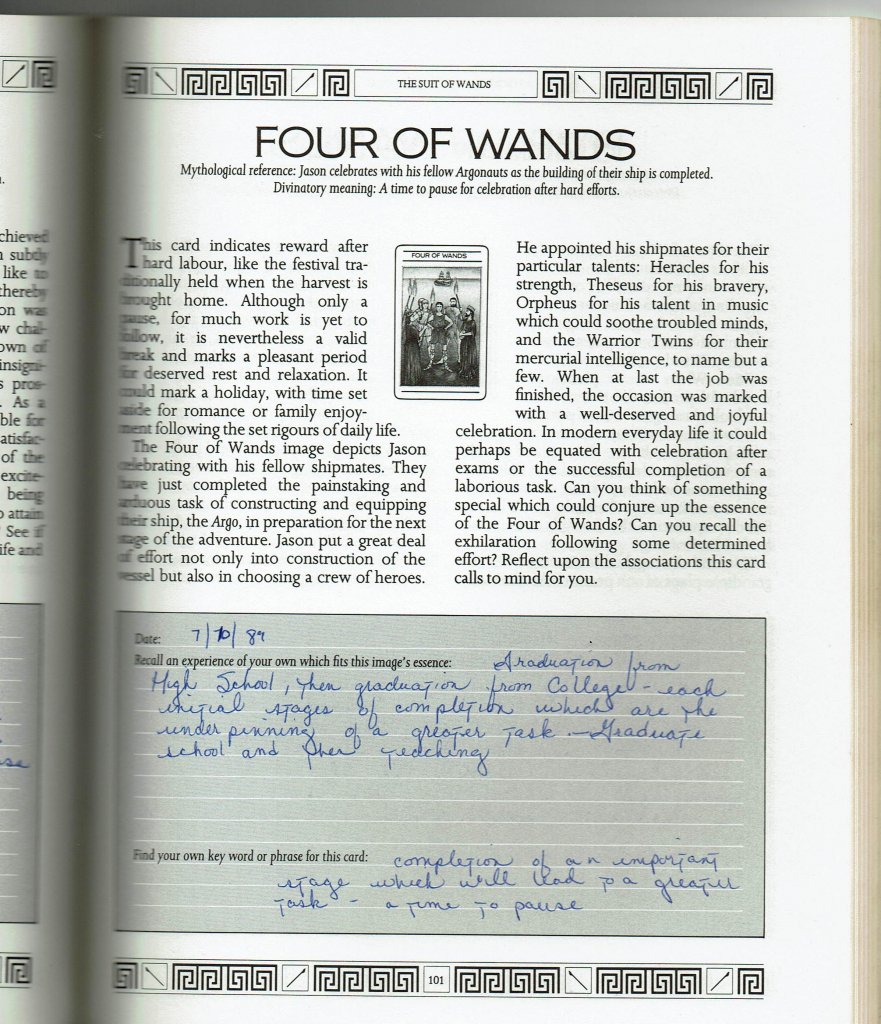 THE SUIT OF WANDS
FOUR OF WANDS
Mythological reference: Jason celebrates with his fellow Argonauts as the building of their ship is completed.
Divinatory meaning: A time to pause for celebration after hard efforts.
This card indicates reward after
hard labour, like the festival tra-
ditionally held when the harvest is
brought home. Although only a
pause, for much work is yet to
follow, it is nevertheless a valid
break and marks a pleasant period
for deserved rest and relaxation. It
could mark a holiday, with time set
aside for romance or family enjoy-
ment following the set rigours of daily life.
The Four of Wands image depicts Jason
celebrating with his fellow shipmates. They
have just completed the painstaking and
arduous task of constructing and equipping
their ship, the Argo, in preparation for the next
stage of the adventure. Jason put a great deal
of effort not only into construction of the
vessel but also in choosing a crew of heroes.
FOUR OF WANDS
He appointed his shipmates for their
particular talents: Heracles for his
strength, Theseus for his bravery,
Orpheus for his talent in music
which could soothe troubled minds,
and the Warrior Twins for their
mercurial intelligence, to name but a
few. When at last the job was
finished, the occasion was marked
with a well-deserved and joyful
celebration. In modern everyday life it could
perhaps be equated with celebration after
exams or the successful completion of a
laborious task. Can you think of something
special which could conjure up the essence
of the Four of Wands? Can you recall the
exhilaration following some determined
effort? Reflect upon the associations this card
calls to mind for you.
Date: 7/10/89
Recall an experience of your own which fits this image's essence: Graduation from
High School, then graduation from College - each
initial stages of completion which are the
underpinning of a greater task - Graduate
school and then teaching
Find your own key word or phrase for this card: completion of an important
stage which will lead to a greater
task - a time to pause
101